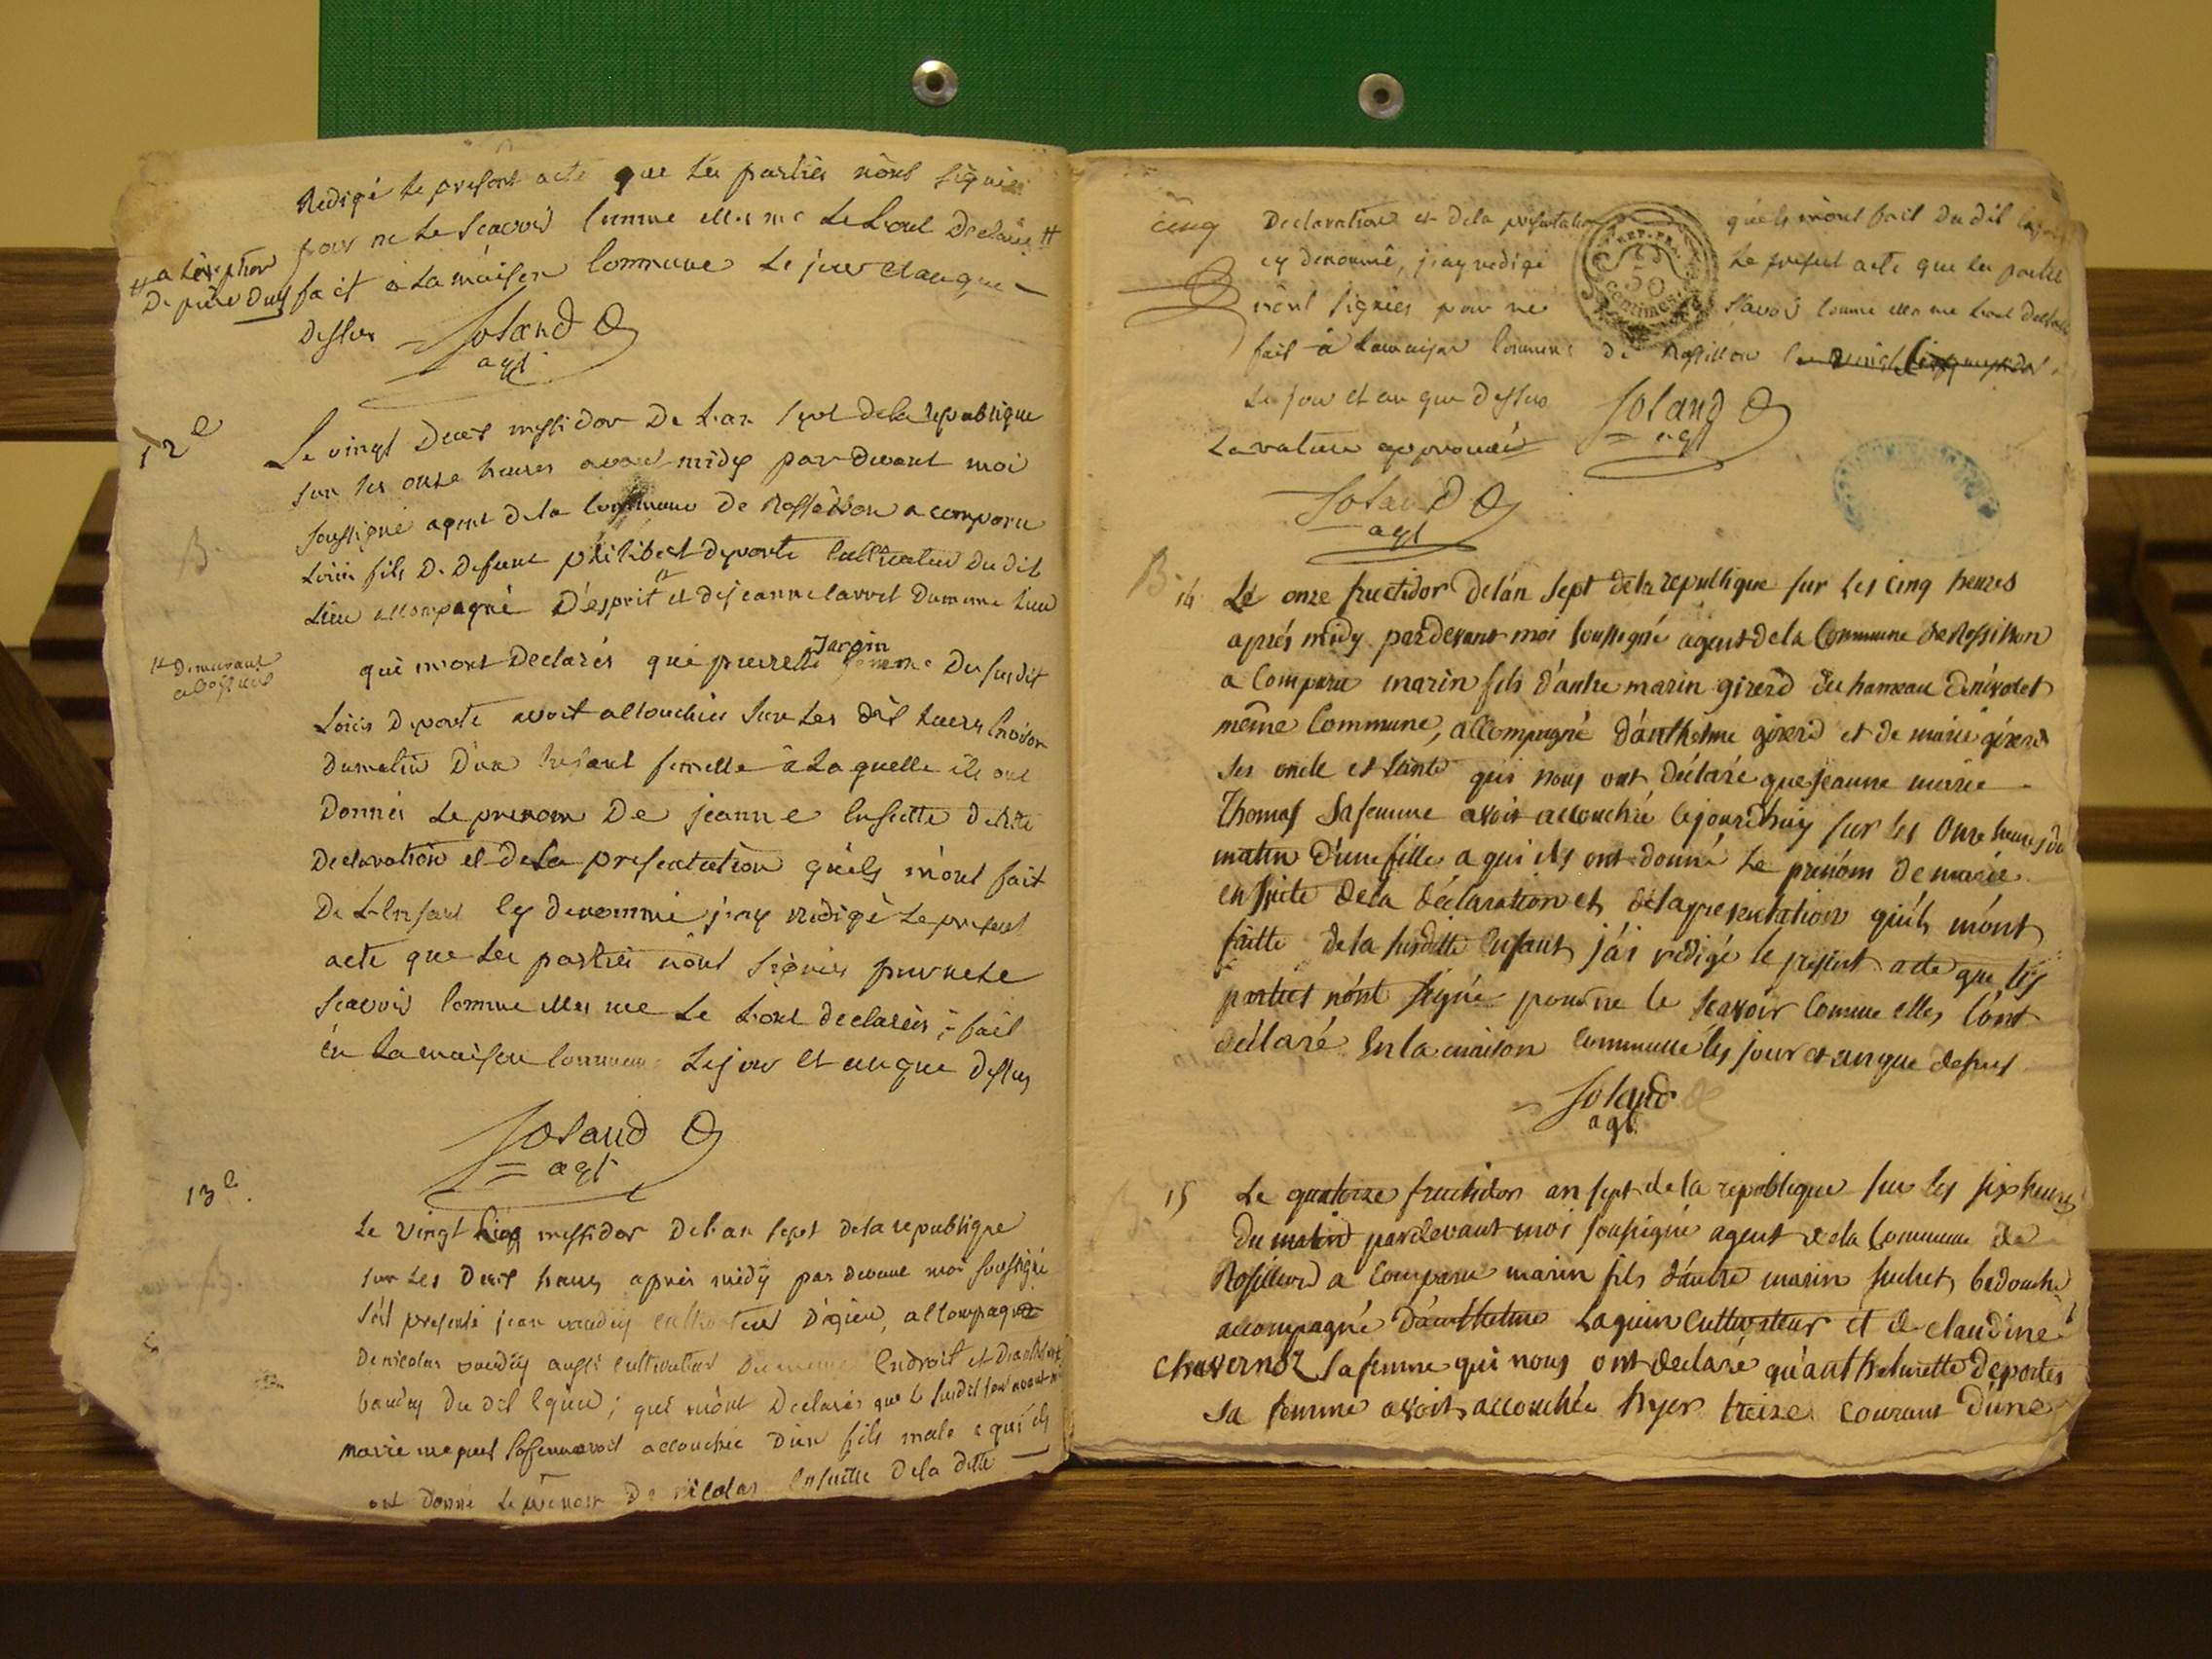 Redigé le present acte que les parties n'ont signées
pour ne le scavoir comme elles me le l'ont declarée #
# a l'exception
de pierre
fait a la maison commune le jour et an que
dessus Soland
agt
12e
Le vingt deux messidor de l'an sept de la republique
sur les onze heures avant midy par devant moi
soussigné agent de la commune de Rossillon a comparu
Louis fils de defunt philibert deporte cultivateur du dit
lieu accompagné d'esprit # et de jeanne du meme lieu
# demeurant
qui m'ont declarés que pierrette Jargin femme du susdit
Louis deporte avoit accouchée sur les dix heures environ
du matin d'un enfant femelle a laquelle ils ont
donnés le prenom de jeanne ensuitte de cette
declaration et de la presentation qu'ils m'ont fait
de l'enfant cy denommé j'ay redigé le present
acte que les parties n'ont signées pour ne le
scavoir comme elles me le l'ont declarées ; fait
en la maison commune le jour et an que dessus
Soland
agt
13e.
Le vingt cinq messidor de l'an sept de la republique
sur les deux heures après midÿ par devant moi soussigné
s'est presenté jean cultivateur d'egieu, accompagné
de nicolas aussi cultivateur du meme endroit et
du dit egieu ; qui m'ont declarés que le susdit jour avant
marie sa femme avoit accouchée d'un fils male a qui ils
ont donné le prenom de nicolas ensuitte de la ditte
cinq
Declaration et de la presentation qu'ils m'ont fait du dit
cy denommé, j'ay redigé le present acte que les parties
n'ont signées pour ne scavoir comme elles me l'ont declaré
fait a la maison commune de Rossillon
le jour et an que dessus Soland
agt
la rature approuvée
Soland
agt
B. 14 Le onze fructidor de l'an sept de la republique sur les cinq heures
après midy pardevant moi soussigné agent de la Commune de Rossillon
a comparu marin fils d'autre marin girerd du hameau de nivolet
même commune, accompagné d'anthelme girerd et de marie girerd
ses oncle et tante qui nous ont déclaré que jeanne marie
Thomas sa femme avoit accouchée cejourd'huy sur les onze heures du
matin d'une fille a qui ils ont donné le prénom de marie
ensuite de la déclaration et de la presentation qu'ils m'ont
faitte de la susditte enfant, j'ai redigé le present acte que les
parties n'ont signé pour ne le scavoir comme elles l'ont
déclaré En la maison commune les jour et an que dessus
Soland
agt.
15 Le quatorze fructidor an sept de la republique sur les six heures
du matin pardevant moi soussigné agent de la Commune de
Rossillon a comparu marin fils d'autre marin suchet,
accompagné d'anthelme Laguin cultivateur et de claudine
chavernoz sa femme qui nous ont declaré qu'anthelmette deportes
sa femme avoit accouchée hyer treize courant d'une